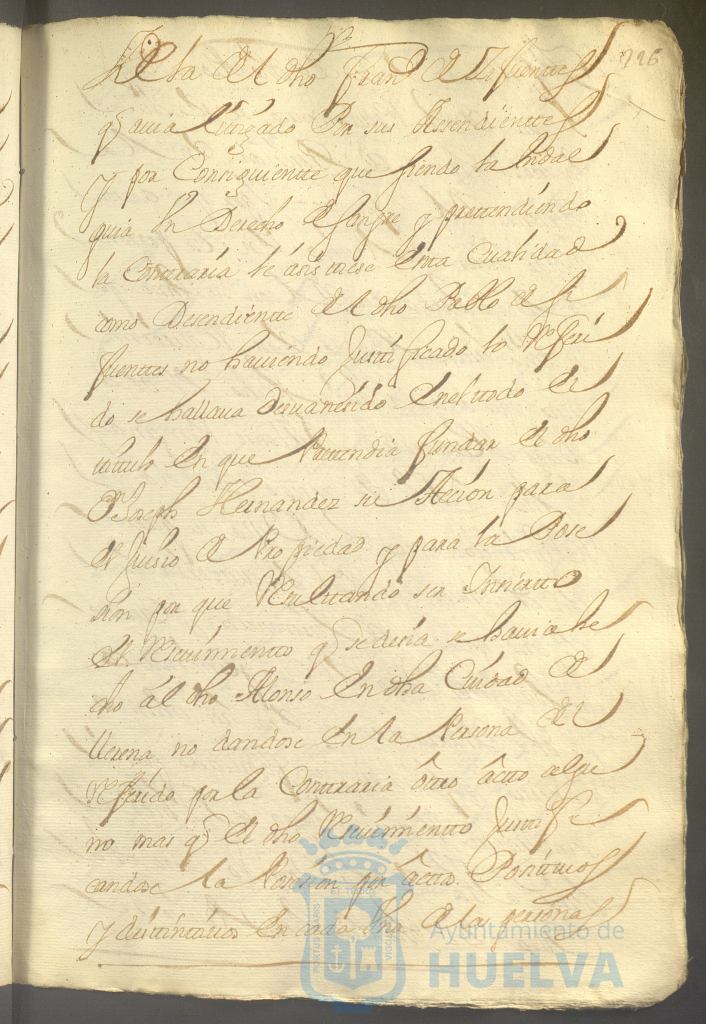 226
de la del dho Fran.co de Zifuentes
q avia litigado Por sus Asendientes
y por Consiguiente que siendo la hidal
guia Un Derecho de sangre y pretendiendo
la Contraria le asistiese esta Cualidad
como Desendiente del dho Pablo de Si
fuentes no haviendo Justificado lo Referi
do se hallava desvanesido en el todo el
titulo en que Pretendia fundar el dho
D Joseph Hernandez su Acción para
el Juisio de Propiedad y para la Pose
sion por que Resultando ser Incierto
el Resivimiento q se desia se havia he
cho al dho Alonso en dha Ciudad de
Llerena no dandose en la Persona del
Referido por la Contraria otro acto algu
no mas q el dho Resivimiento Justifi
candose la Posesion por actos Positivos
y distintivos en cada Una de las personas
Ayuntamiento de
HUELVA